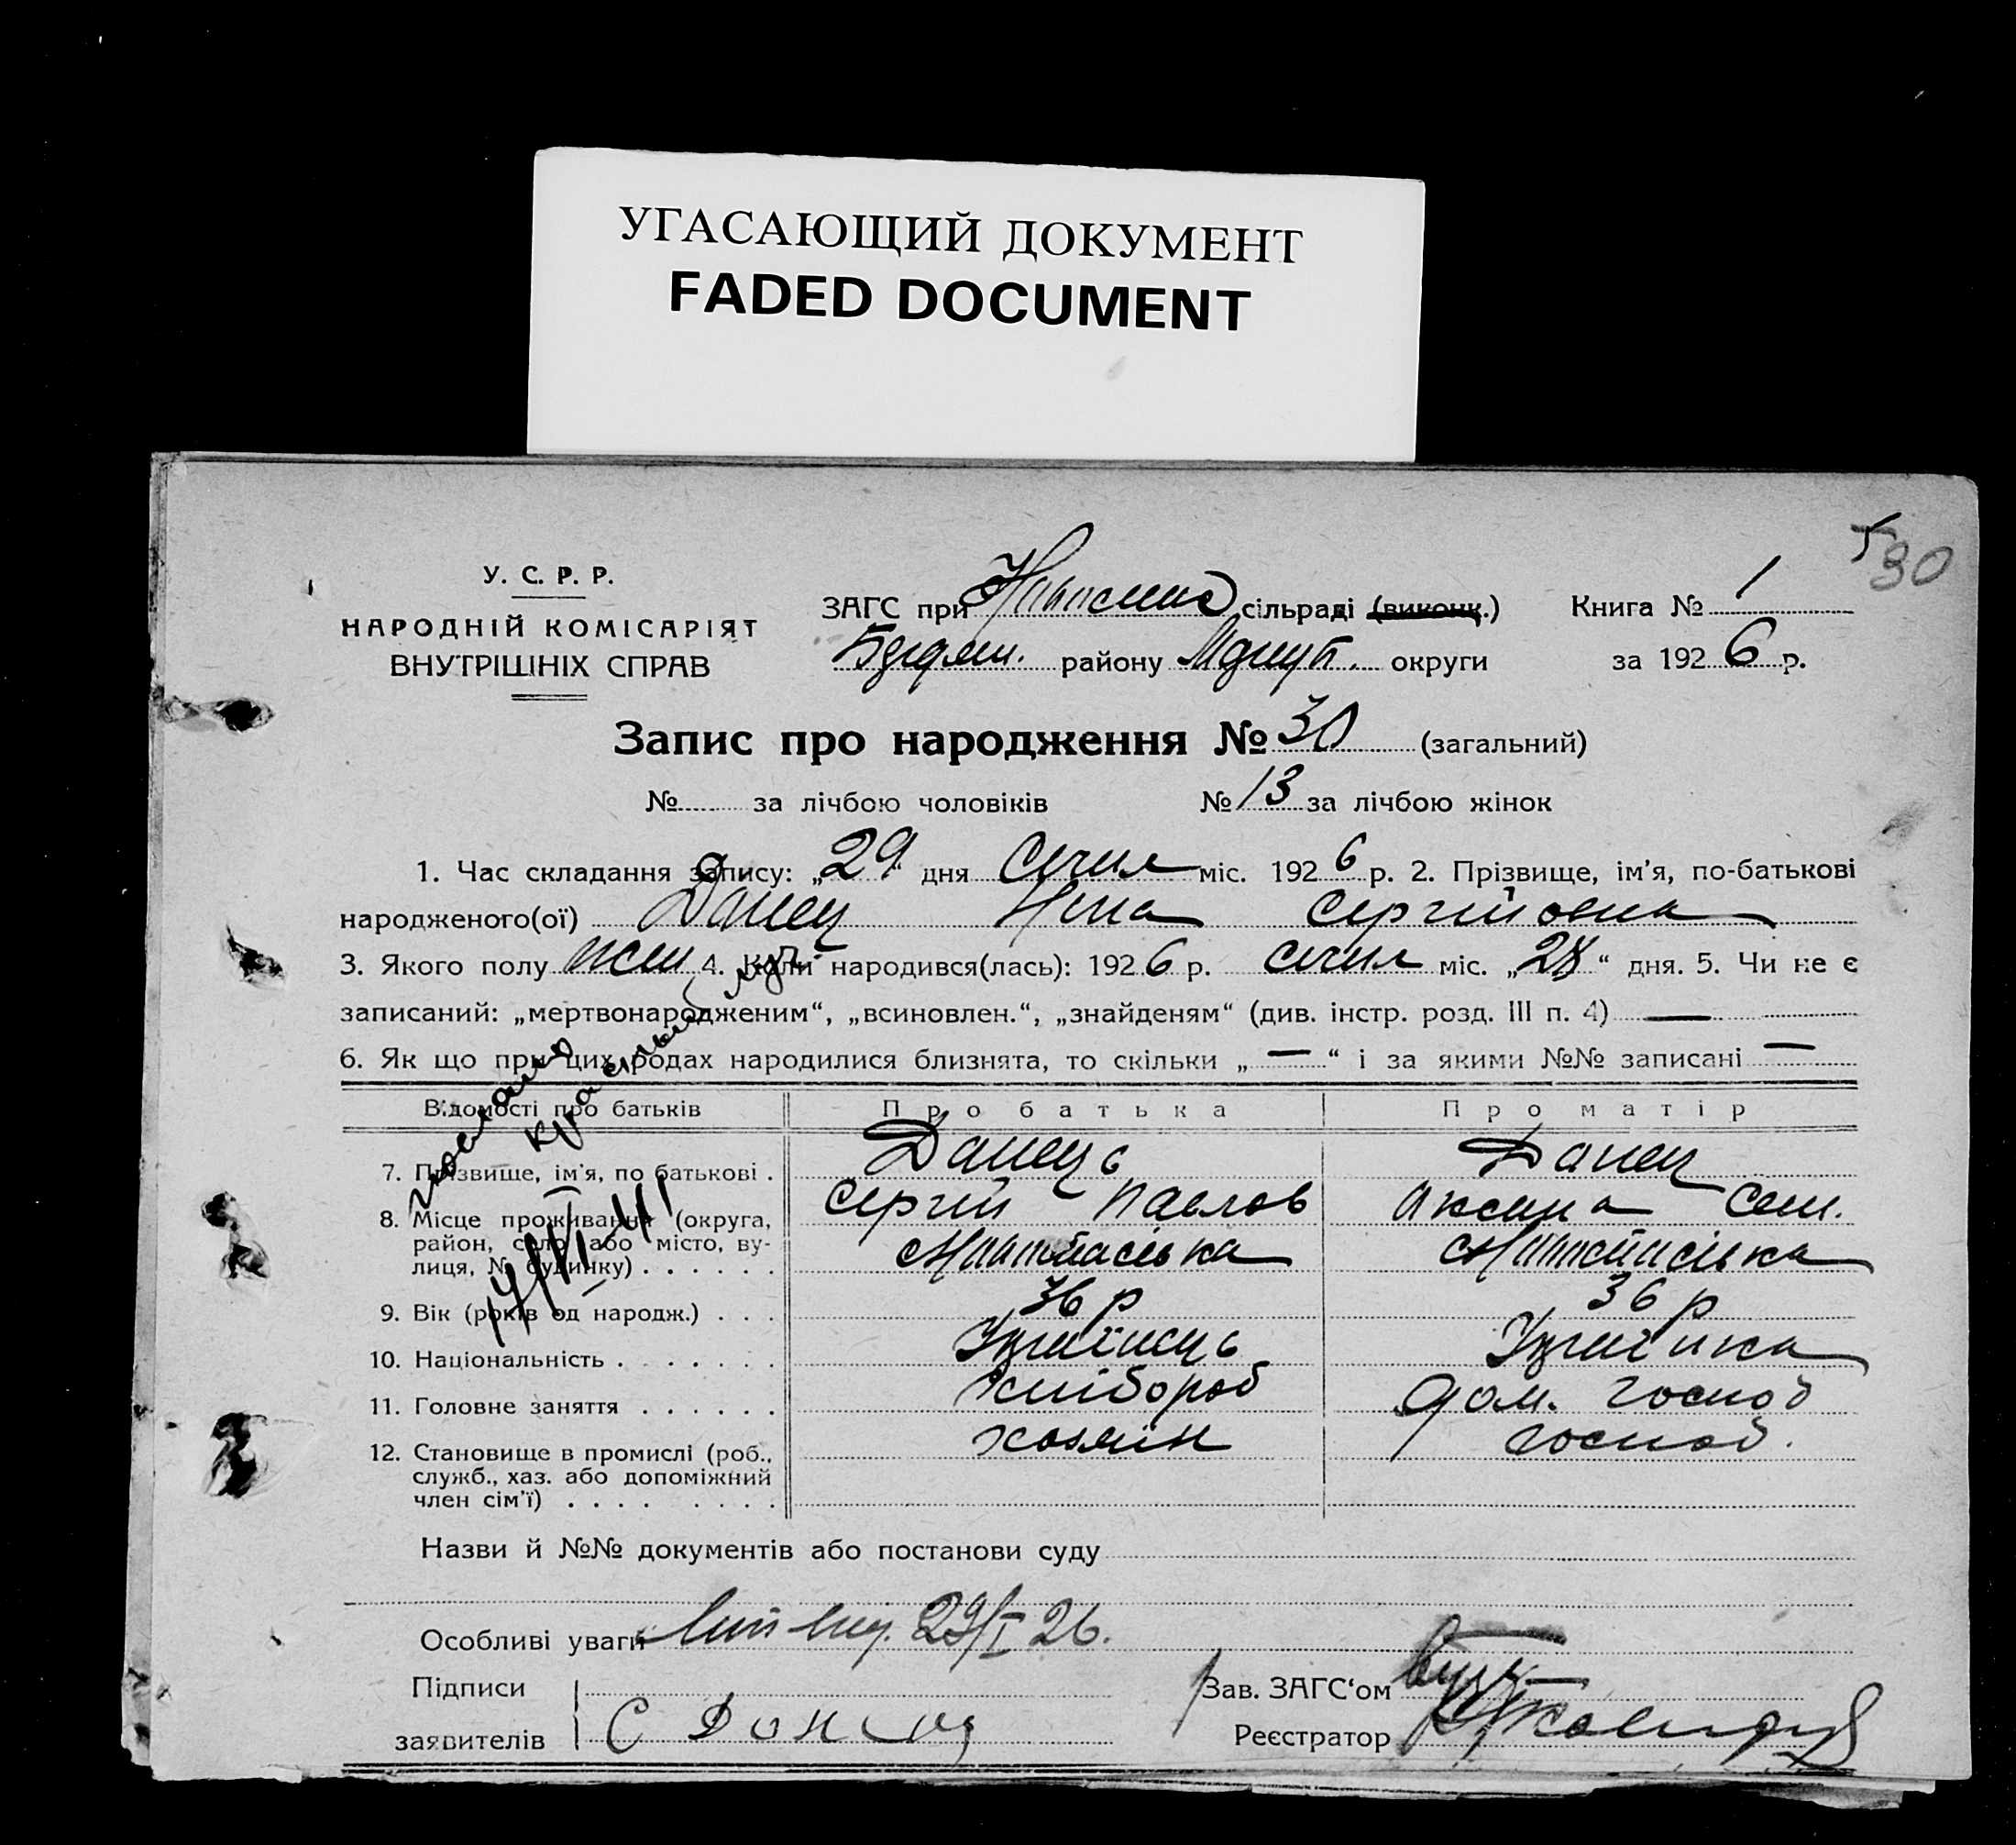 УГАСАЮЩИЙ ДОКУМЕНТ
FADED DOCUMENT
30
У. С. Р. Р.
НАРОДНІЙ КОМІСАРІЯТ
ВНУТРІШНІХ СПРАВ
ЗАГС при сільраді (виконк.)
району округи
Книга № 1
за 1926 р.
Запис про народження № 30 (загальний)
№ за лічбою чоловіків № 13 за лічбою жінок
1. Час складання запису: „29“ дня Січня міс. 1926 р. 2. Прізвище, ім'я, по-батькові
народженого(ої) Данец Нина Сергійовна
3. Якого полу жен 4. Коли народився(лась): 1926 р. січня міс. „28“ дня. 5. Чи не є
записаний: „мертвонародженим“, „всиновлен.“, „знайденям“ (див. інстр. розд. III п. 4) —
6. Як що при цих родах народилися близнята, то скільки „—“ і за якими №№ записані —
Відомості про батьків Про батька Про матір
7. Прізвище, ім'я, по батькові . Данець Данец
Сергій Павлов Аксина Сем.
8. Місце проживання (округа,
район, село або місто, ву-
лиця, № будинку) . . . . . .
9. Вік (років од народж.) . . . 36 р 36 р
10. Національність . . . . . . . Українець Українка
11. Головне заняття . . . . . . Хлібороб дом. господ
12. Становище в промислі (роб.,
служб., хаз. або допоміжний
член сім'ї) . . . . . . . . хозяїн господ.
Назви й №№ документів або постанови суду
Особливі уваги 29/I 26.
Підписи
заявителів С Донец
Зав. ЗАГС'ом
Реєстратор